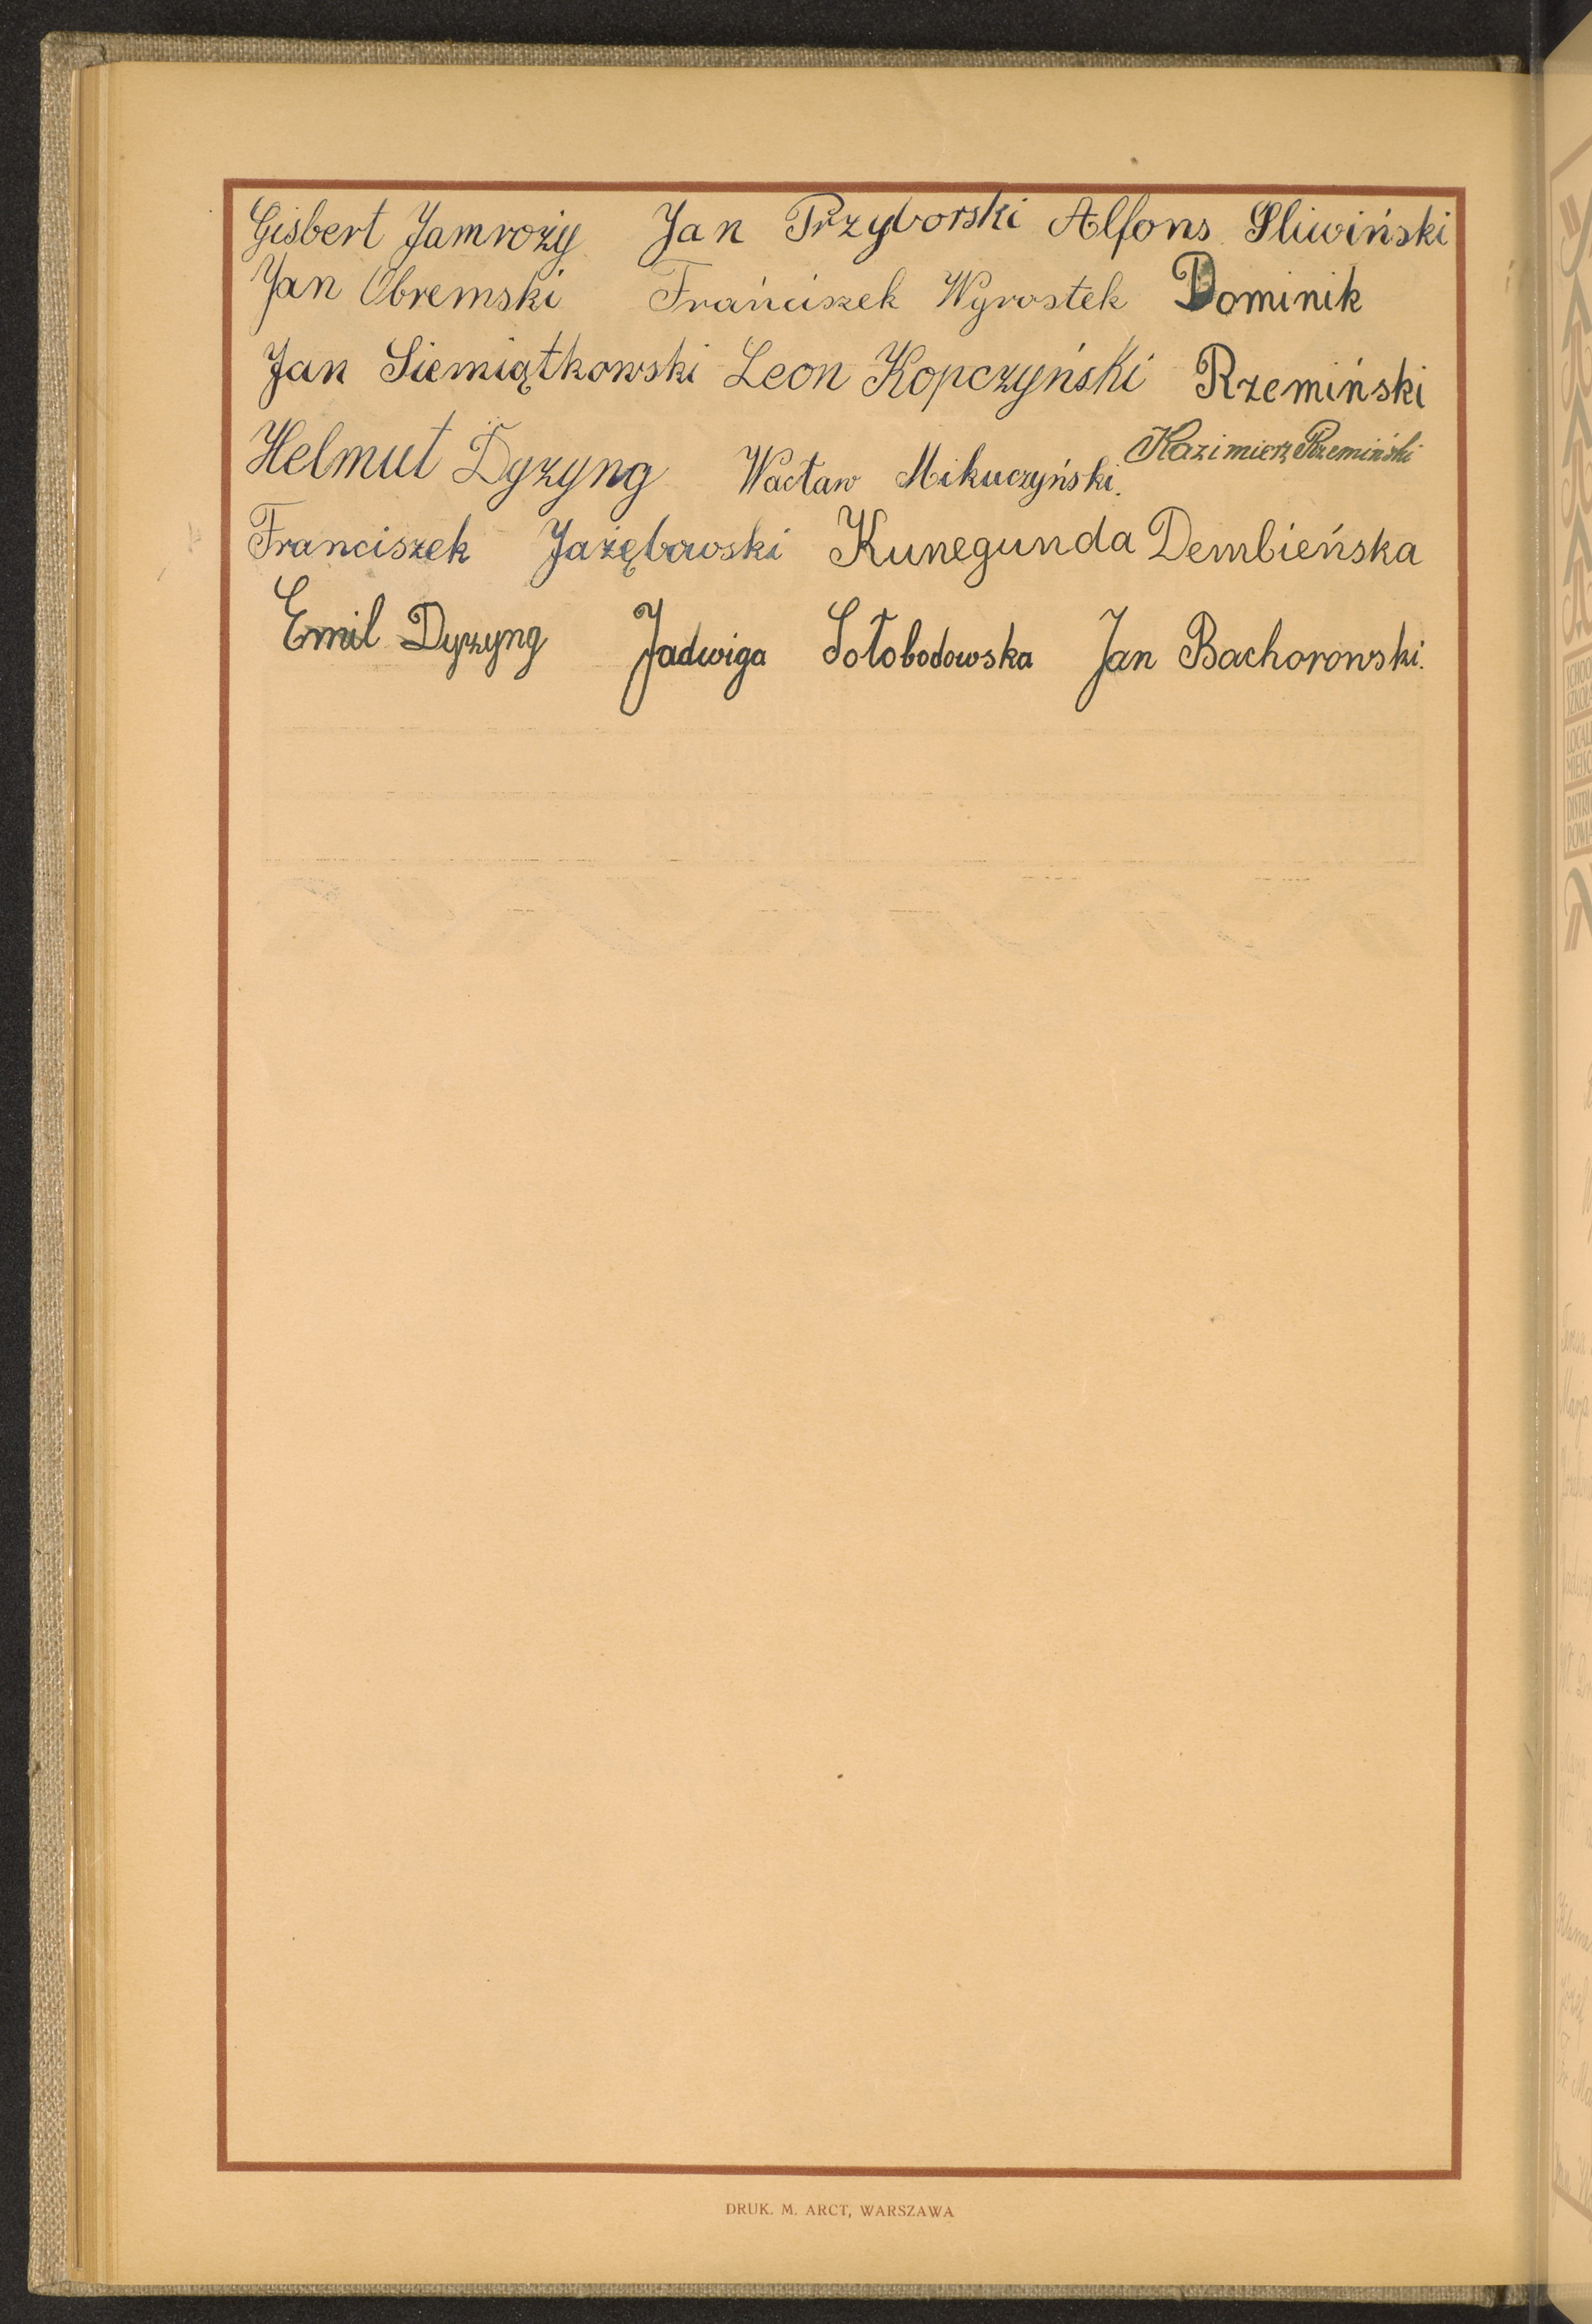 Gisbert Jamroży Jan Przyborski Alfons Sliwiński
Jan Obremski Frańciszek Wyrostek Dominik
Jan Siemiątkowski Leon Kopczyński Rzemiński
Helmut Dyzyng Wacław Mikuczyński. Kazimierz Rzemiński
Franciszek Jażębowski Kunegunda Dembieńska
Emil Dyzyng Jadwiga Sołobodowska Jan Bachorowski.
DRUK. M. ARCT, WARSZAWA